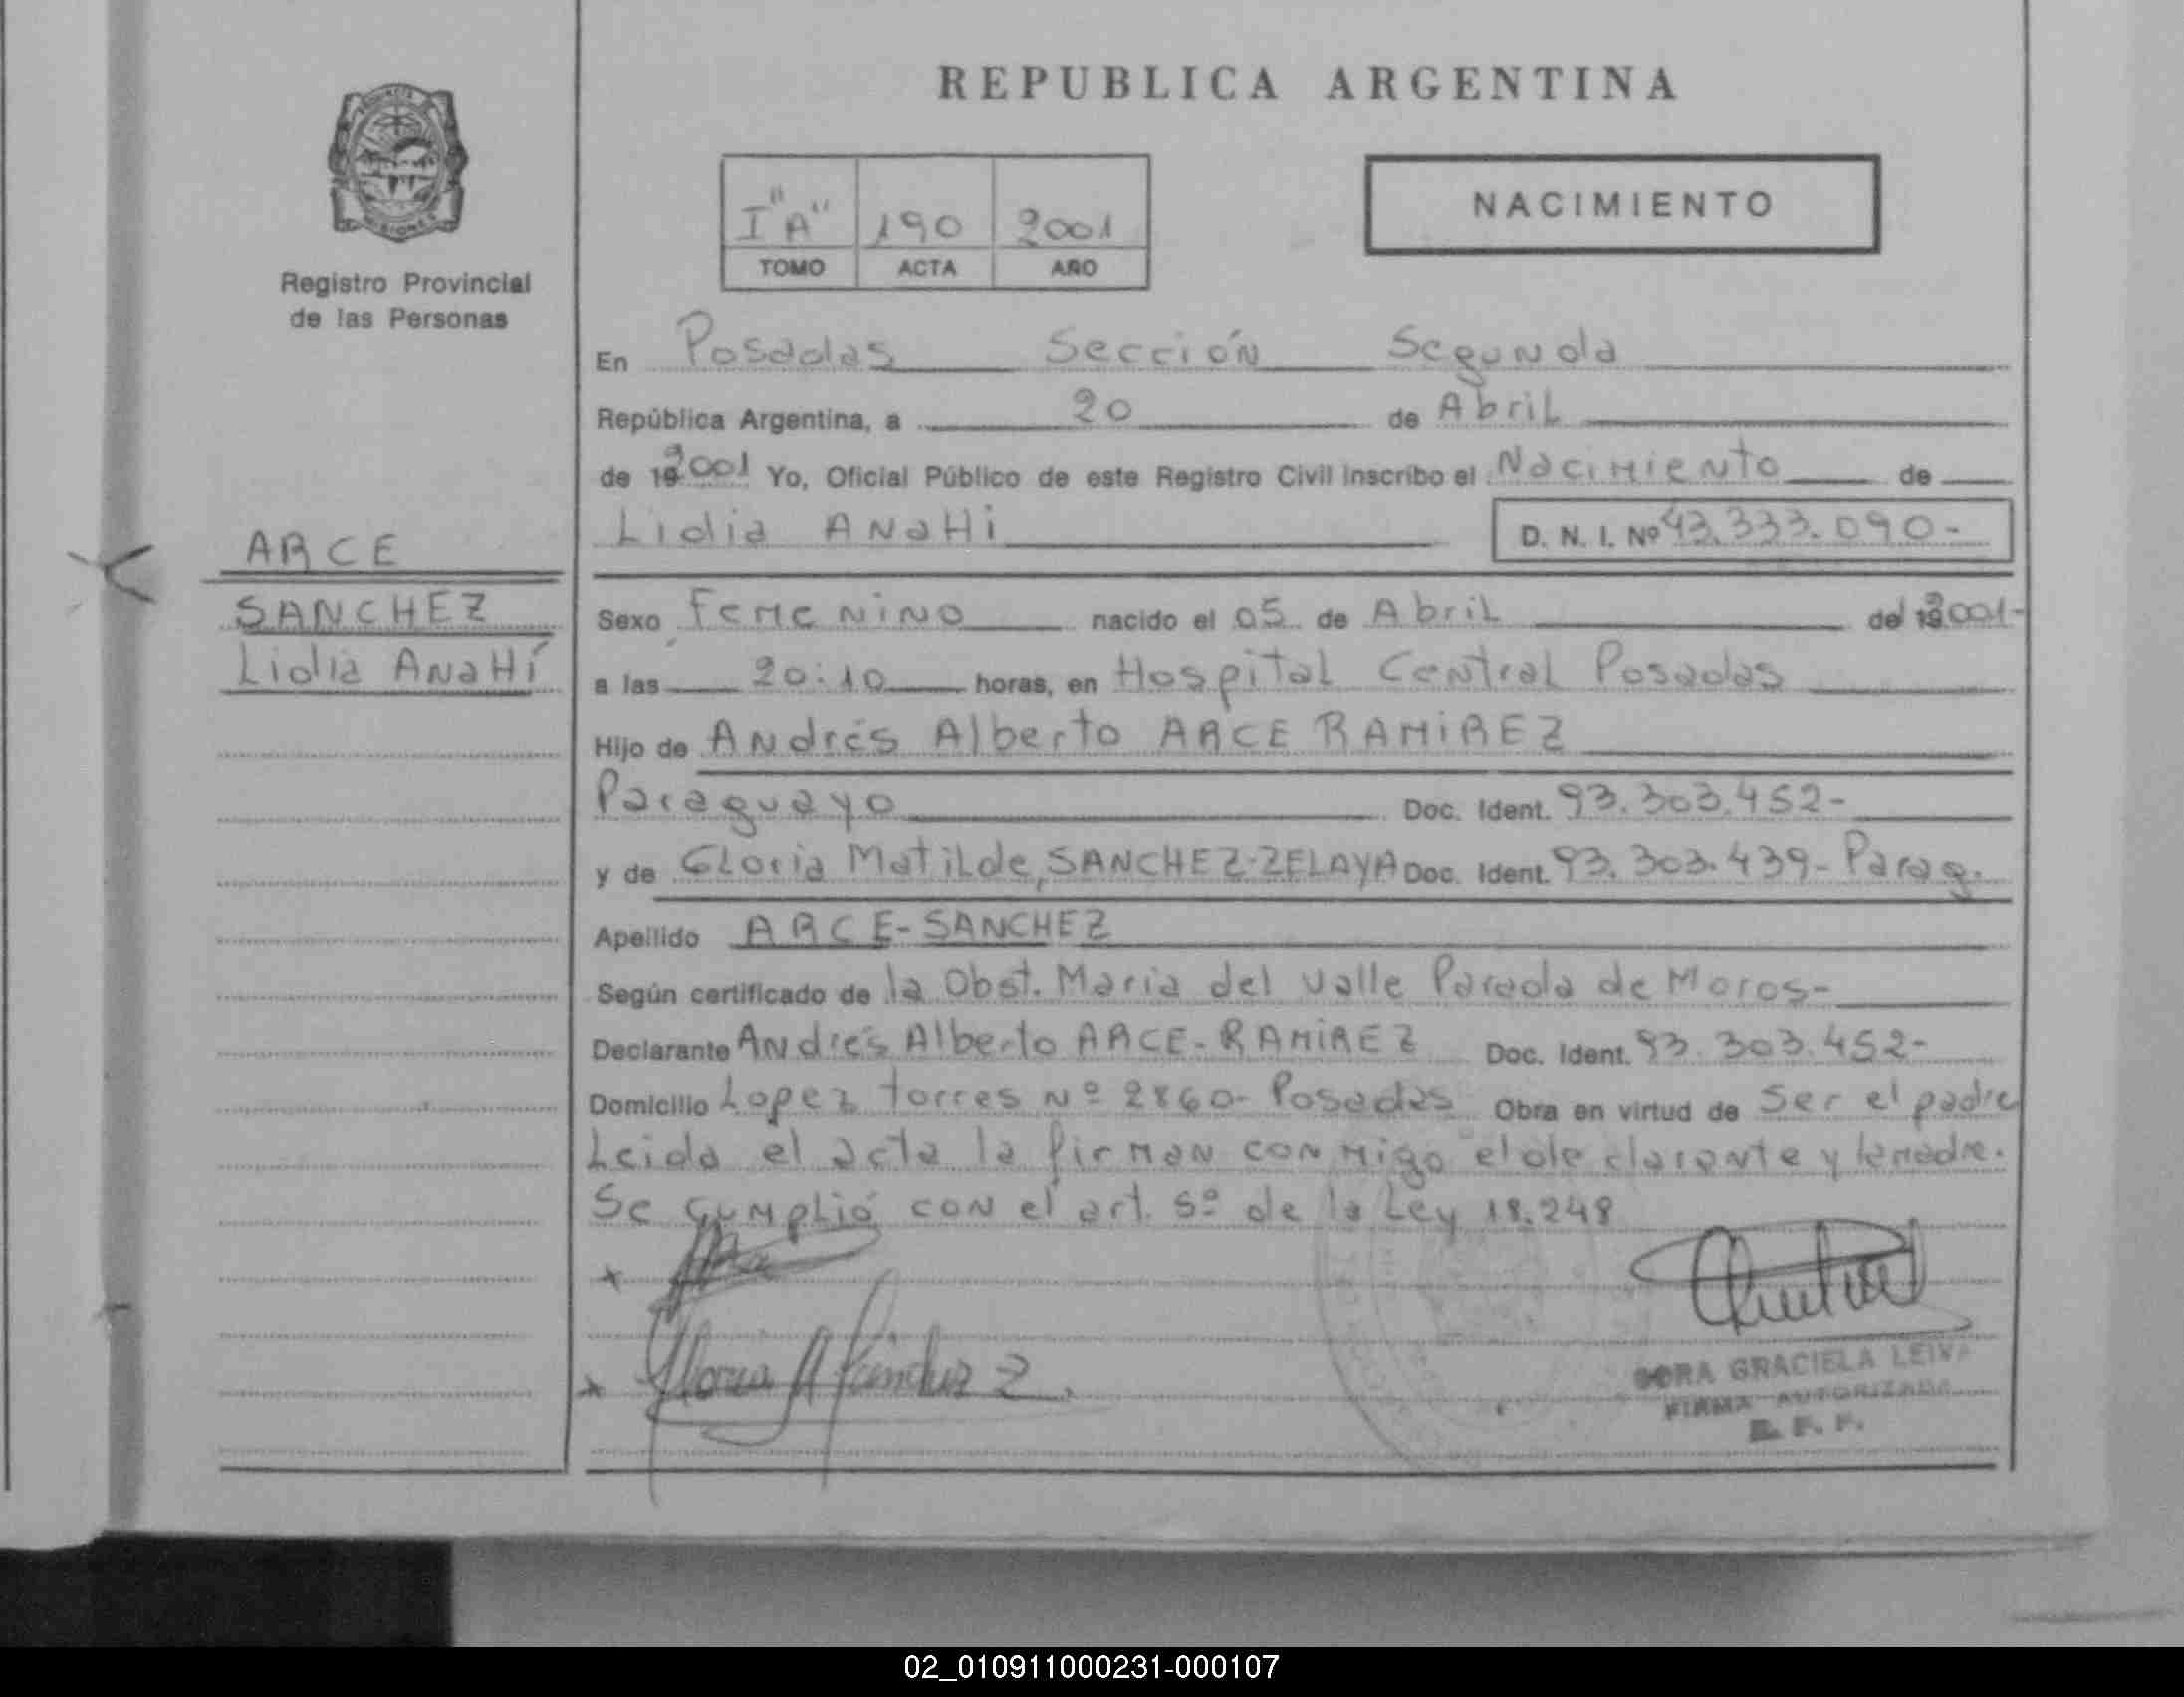 REPUBLICA ARGENTINA
Registro Provincial
de las Personas
I "A" 190 2001
TOMO ACTA AÑO
NACIMIENTO
En Posadas Sección Segunda
República Argentina, a 20 de Abril
de 2001 Yo, Oficial Público de este Registro Civil inscribo el Nacimiento de
Lidia Anahi D. N. I. Nº 43.333.090-
ARCE
SANCHEZ
Lidia Anahí
Sexo Femenino nacido el 05 de Abril del 2001-
a las 20:10 horas, en Hospital Central Posadas
Hijo de Andrés Alberto ARCE RAMIREZ
Paraguayo Doc. Ident. 93.303.452-
y de Gloria Matilde, SANCHEZ-ZELAYA Doc. Ident. 93.303.439- Parag.
Apellido ARCE-SANCHEZ
Según certificado de la Obst. Maria del Valle Parada de Moros-
Declarante Andrés Alberto ARCE-RAMIREZ Doc. Ident. 93.303.452-
Domicilio Lopez torres Nº 2860- Posadas Obra en virtud de Ser el padre
Leida el acta la firman conmigo el declarante y la madre.
Se cumplió con el art. 5º de la Ley 18.248
x
x Gloria M Sánchez Z.
GRACIELA LEIVA
FIRMA AUTORIZADA
02_010911000231-000107